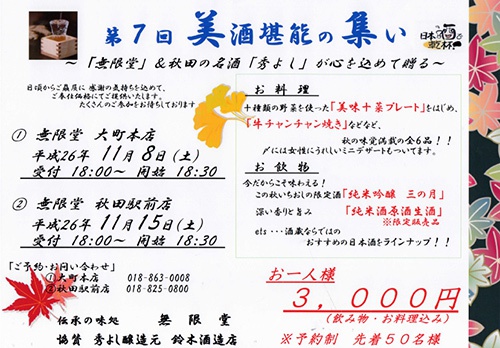 第7回 美酒堪能の集い
日本酒で乾杯
~「無限堂」&秋田の名酒「秀よし」が心を込めて贈る~
日頃からご贔屓に感謝の気持ちを込めて、
ご奉仕価格にてご提供いたします。
たくさんのご参加をお待ちしております
① 無限堂 大町本店
平成26年 11月8日(土)
受付 18:00~ 開始 18:30
② 無限堂 秋田駅前店
平成26年 11月15日(土)
受付 18:00~ 開始 18:30
「ご予約・お問い合わせ」
①大町本店 018-863-0008
②秋田駅前店 018-825-0800
伝承の味処 無限堂
協賛 秀よし醸造元 鈴木酒造店
お料理
十種類の野菜を使った「美味十菜プレート」をはじめ、
「牛チャンチャン焼き」などなど、
秋の味覚満載の全6品!!
〆には女性にうれしいミニデザートもついてます。
お飲物
今だからこそ味わえる!
この秋いちおしの限定酒「純米吟醸 三の月」
深い香りと旨み「純米酒原酒生酒」
※限定販売品
ets…酒蔵ならではの
おすすめの日本酒をラインナップ!!
お一人様
3,000円
(飲み物・お料理込み)
※予約制 先着50名様